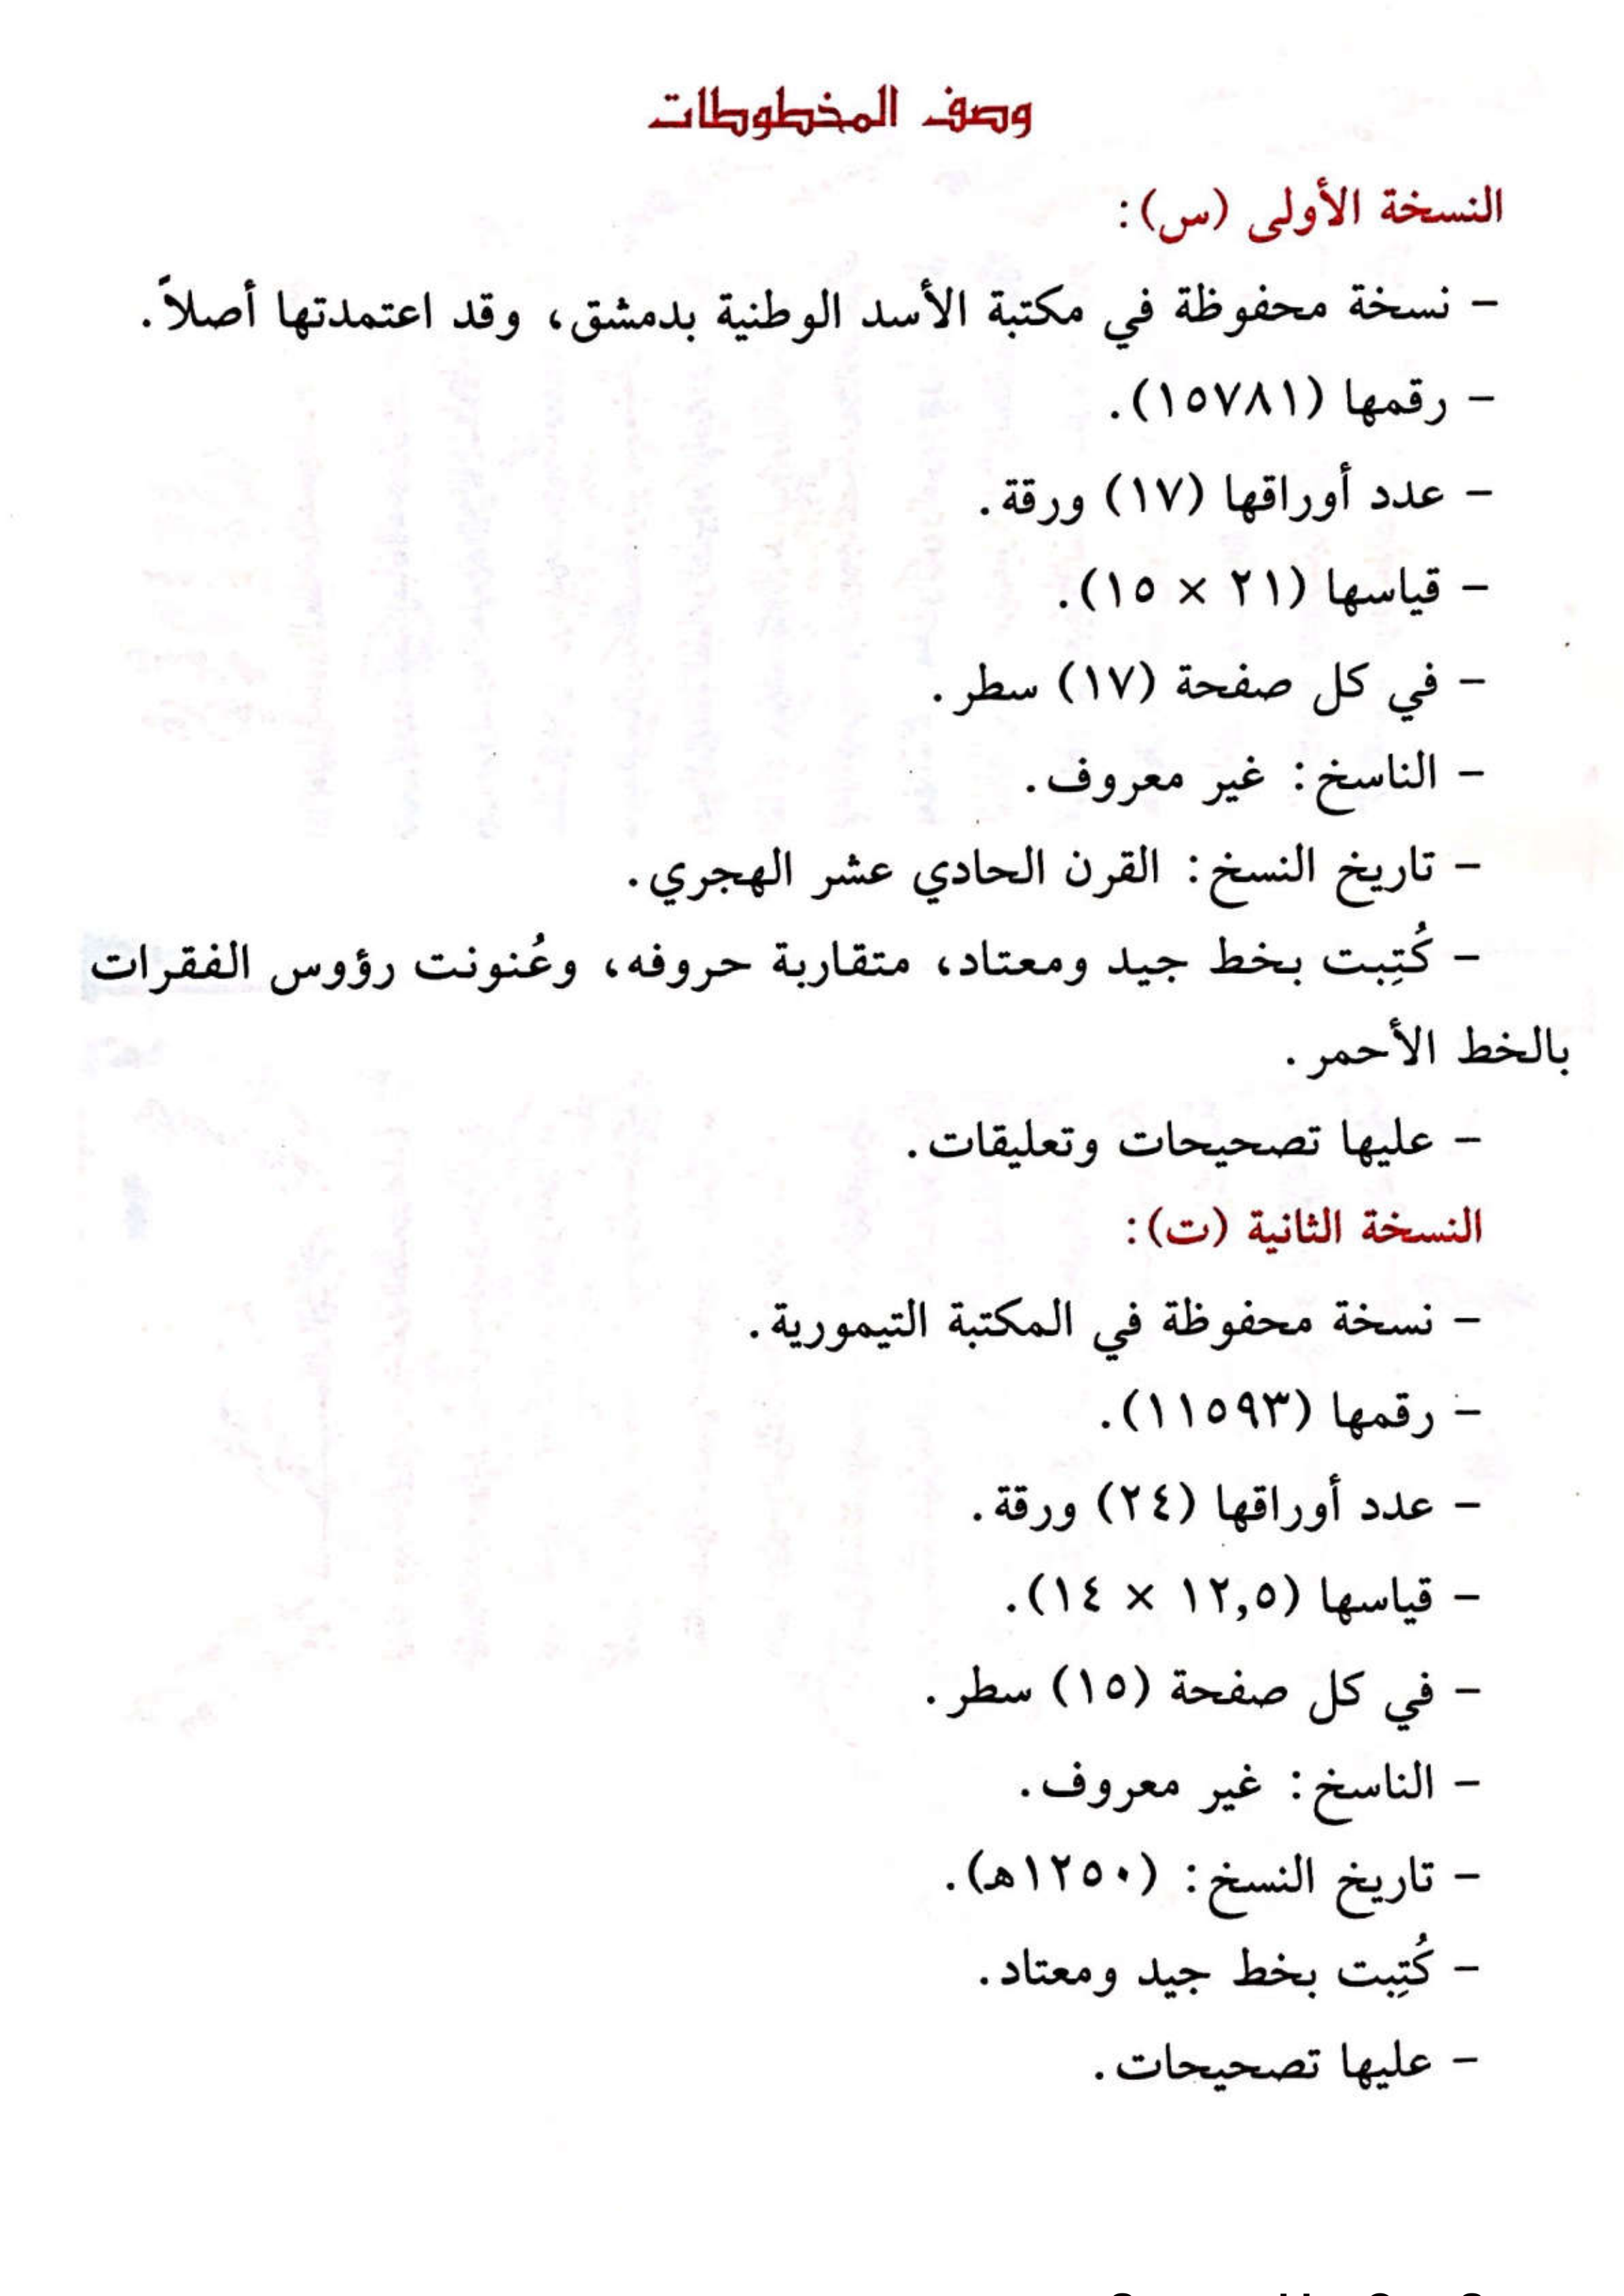 وصف المخطوطات
النسخة الأولى (س):
- نسخة محفوظة في مكتبة الأسد الوطنية بدمشق، وقد اعتمدتها أصلاً.
- رقمها (١٥٧٨١).
- عدد أوراقها (١٧) ورقة.
- قياسها (٢١ × ١٥).
- في كل صفحة (١٧) سطر.
- الناسخ: غير معروف.
- تاريخ النسخ: القرن الحادي عشر الهجري.
- كُتِبت بخط جيد ومعتاد، متقاربة حروفه، وعُنونت رؤوس الفقرات
بالخط الأحمر.
- عليها تصحيحات وتعليقات.
النسخة الثانية (ت):
- نسخة محفوظة في المكتبة التيمورية.
- رقمها (١١٥٩٣).
- عدد أوراقها (٢٤) ورقة.
- قياسها (١٢,٥ × ١٤).
- في كل صفحة (١٥) سطر.
- الناسخ: غير معروف.
- تاريخ النسخ: (١٢٥٠هـ).
- كُتِبت بخط جيد ومعتاد.
- عليها تصحيحات.